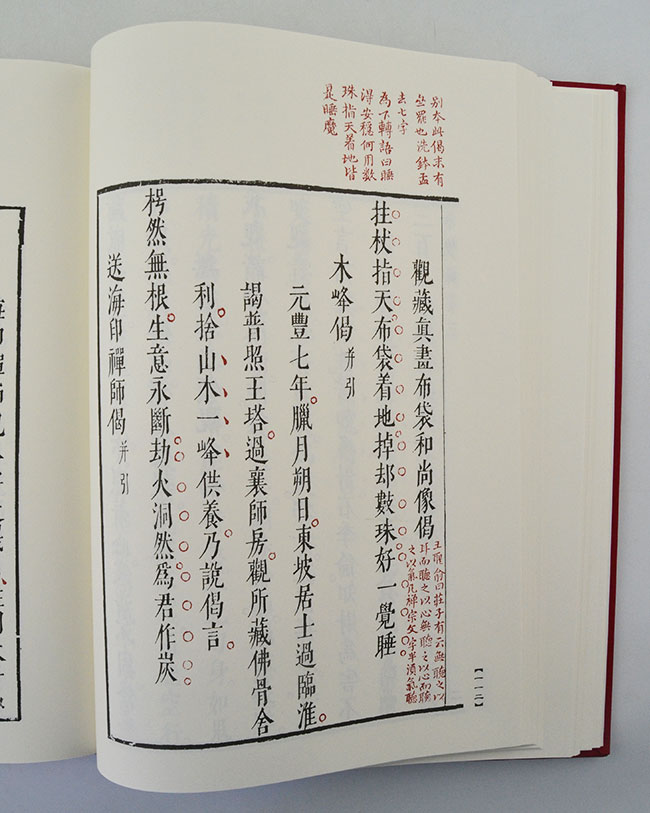 別本此偈末有
亝罷也洗鉢盂
去七字
為下轉語曰睡
得安穩何用數
珠指天着地皆
是睡魔
觀藏眞畫布袋和尚像偈
王聖俞曰莊子有云無聽之以
耳而聽之以心無聽之以心而聽
之以氣凡禪宗文字半須氣聽
拄杖指天布袋着地掉却數珠好一覺睡
木峰偈 并引
元豐七年臘月朔日東坡居士過臨淮
謁普照王塔過襄師房觀所藏佛骨舍
利捨山木一峰供養乃說偈言
枵然無根生意永斷劫火洞然爲君作炭
送海印禪師偈 并引
【一一二】